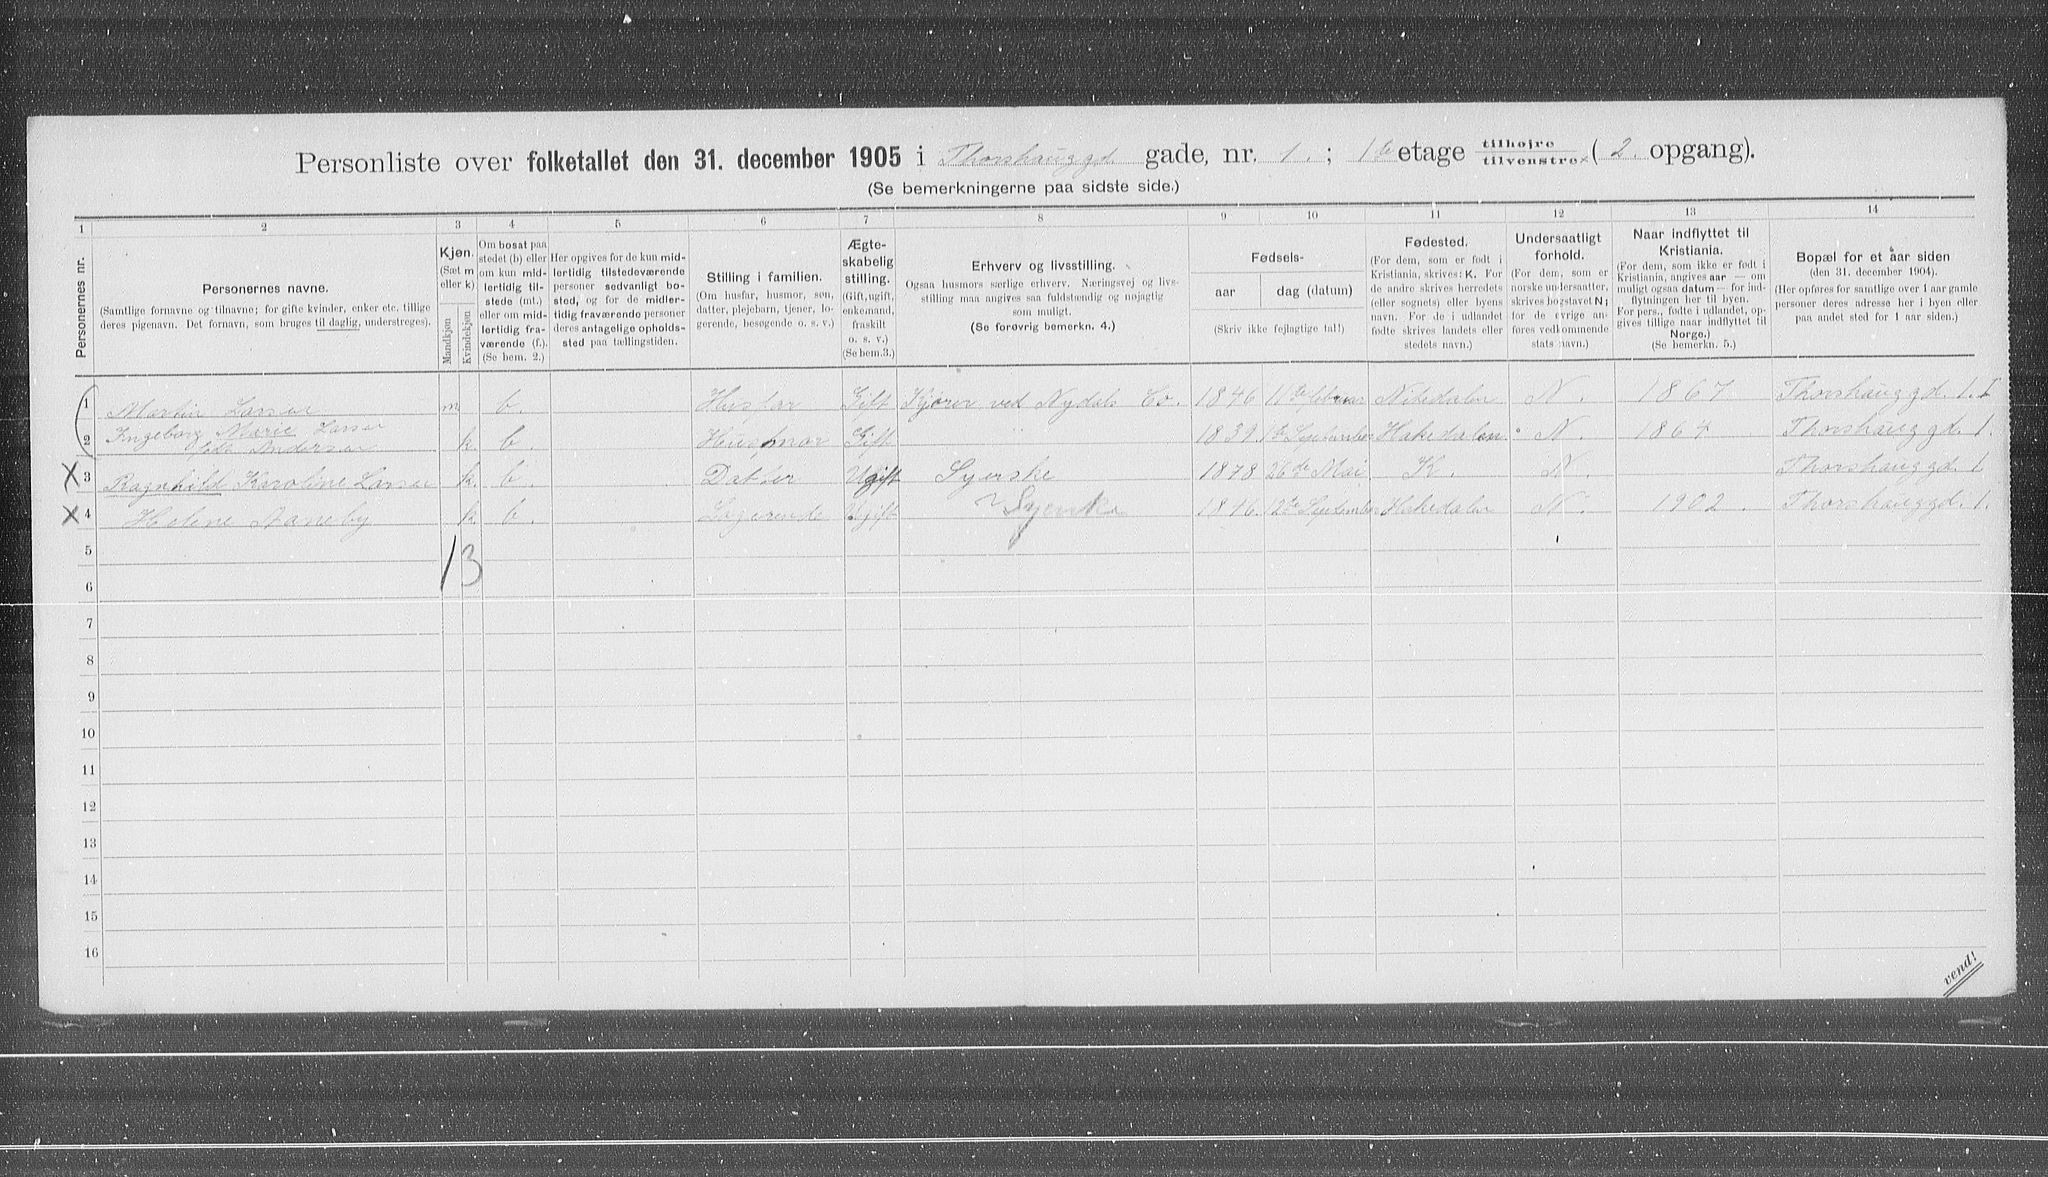 Personliste over folketallet den 31. december 1905 i Thorshauggd gade, nr. 1. ; 1ste etage tilhøjre tilvenstre × ( 2. opgang).
(Se bemerkningerne paa sidste side.)
1 2 3 4 5 6 7 8 9 10 11 12 13 14
Personernes nr.
Personernes navne.
(Samtlige fornavne og tilnavne; for gifte kvinder, enker etc. tillige
deres pigenavn. Det fornavn, som bruges til daglig, understreges).
Kjøn.
(Sæt m
eller k)
Mandkjøn
Kvindekjøn
Om bosat paa
stedet (b) eller
om kun mid-
lertidig til-
stede (mt.)
eller om mid-
lertidig fra-
værende (f.).
(Se bem. 2.)
Her opgives for de kun mid-
lertidig tilstedeværende
personer sedvanlig bo-
sted, og for de midler-
tidig fraværende personer
deres antagelige opholds-
sted paa tællingstiden.
Stilling i familien.
(Om husfar, husmor, søn,
datter, plejebarn, tjener, lo-
gerende, besøgende o. s. v.)
Ægte-
skabelig
stilling.
(Gift, ugift,
enkemand,
fraskilt
o. s. v.)
(Se bem.3.)
Erhverv og livsstilling.
Ogsaa husmors særlige erhverv. Næringsvej og livs-
stilling maa angives saa fuldstændig og nøjagtig
som muligt.
(Se forøvrig bemerkn. 4.)
Fødsels-
aar
dag (datum)
(Skriv ikke fejlagtige tal!)
Fødested.
(For dem, som er født i
Kristiania, skrives: K. For
de andre skrives herredets
(eller sognets) eller byens
navn. For de i udlandet
fødte skrives landets eller
stedets navn.)
Undersaatligt
forhold.
(For dem, som er
norske undersatter,
skrives bogstavet N;
for de øvrige an-
føres vedkommende
stats navn.)
Naar indflyttet til
Kristiania.
(For dem, som ikke er født i
Kristiania, angives aar — om
muligt ogsaa datum — for ind-
flytningen her til byen.
For pers., fødte i udlandet, op-
gives tillige naar indflyttet til
Norge.)
(Se bemerkn. 5.)
Bopæl for et aar siden
(den 31. december 1904).
(Her opføres for samtlige over 1 aar gamle
personer deres adresse her i byen eller
paa andet sted for 1 aar siden.)
1 Martin Larsen m b. Husfar Gift Kjører ved Nydals Co. 1846 11te februar Nitedalen N. 1867 Thorshauggd. 1. I
2 Ingeborg Marie Larsen
født Andersen k. b. Husmor Gift 1839 1te September Hakedalen N 1864 Thorshauggd. 1.
X 3 Ragnhild Karoline Larsen k. b. Datter Ugift Syerske 1878 26de Mai K. N. Thorshauggd. 1.
X 4 Helene Aaneby k b. Logerende Ugift Syerske 1846. 12te September Hakedalen N. 1902. Thorshauggd. 1.
5
1 3
6
7
8
9
10
11
12
13
14
15
16
vend!